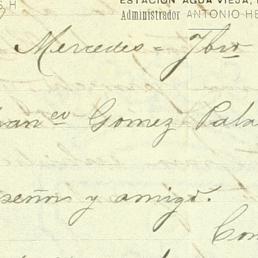 S H
ESTACIÓN AGUA VIEJA,
Administrador ANTONIO HE
Mercedes = Jbro
Gomez Pala
señor y amigo.
Con